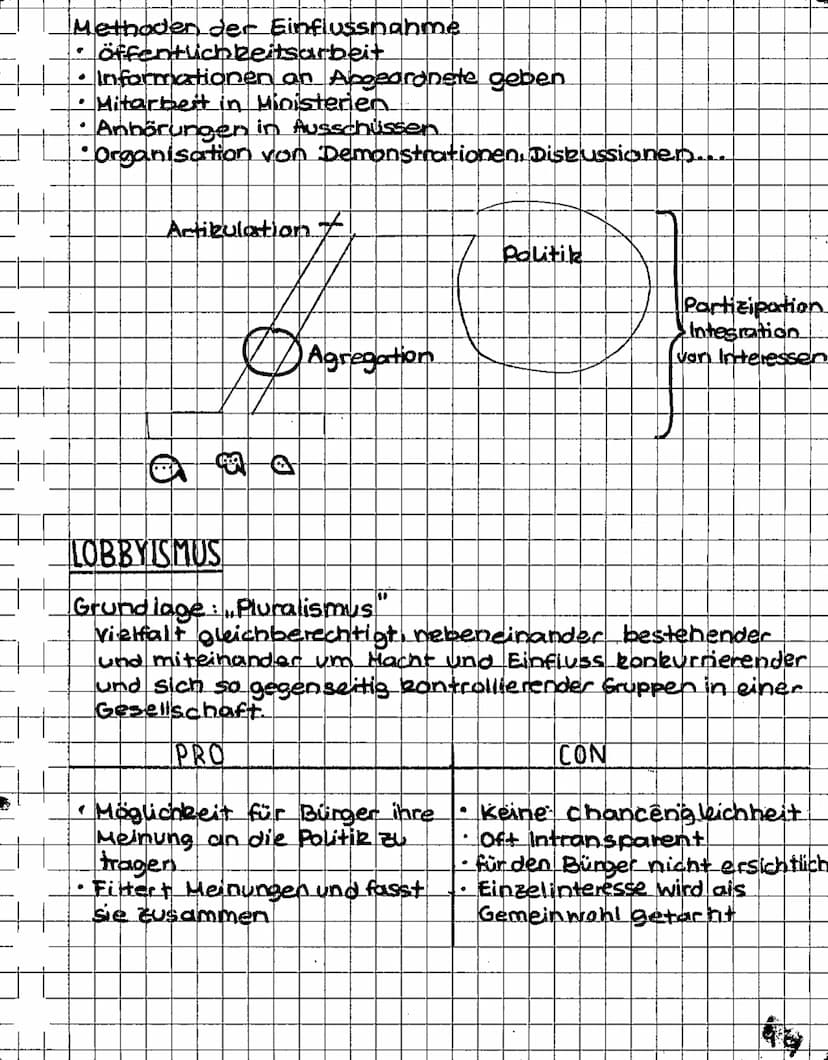 Methoden der Einflussnahme
• öffentlichkeitsarbeit
• Informationen an Abgeordnete geben
• Mitarbeit in Ministerien
• Anhörungen in Ausschüssen
• Organisation von Demonstrationen, Diskussionen...
Artikulation
Politik
Partizipation
Integration
von Interessen
Agregation
LOBBYISMUS
Grundlage: „Pluralismus"
Vielfalt gleichberechtigt, nebeneinander bestehender
und miteinander um Macht und Einfluss konkurrierender
und sich so gegenseitig kontrollierender Gruppen in einer
Gesellschaft.
PRO
• Möglichkeit für Bürger ihre
Meinung an die Politik zu
tragen
• Filtert Meinungen und fasst
sie zusammen
CON
• Keine Chancengleichheit
• Oft Intransparent
• für den Bürger nicht ersichtlich
• Einzelinteresse wird als
Gemeinwohl getarnt